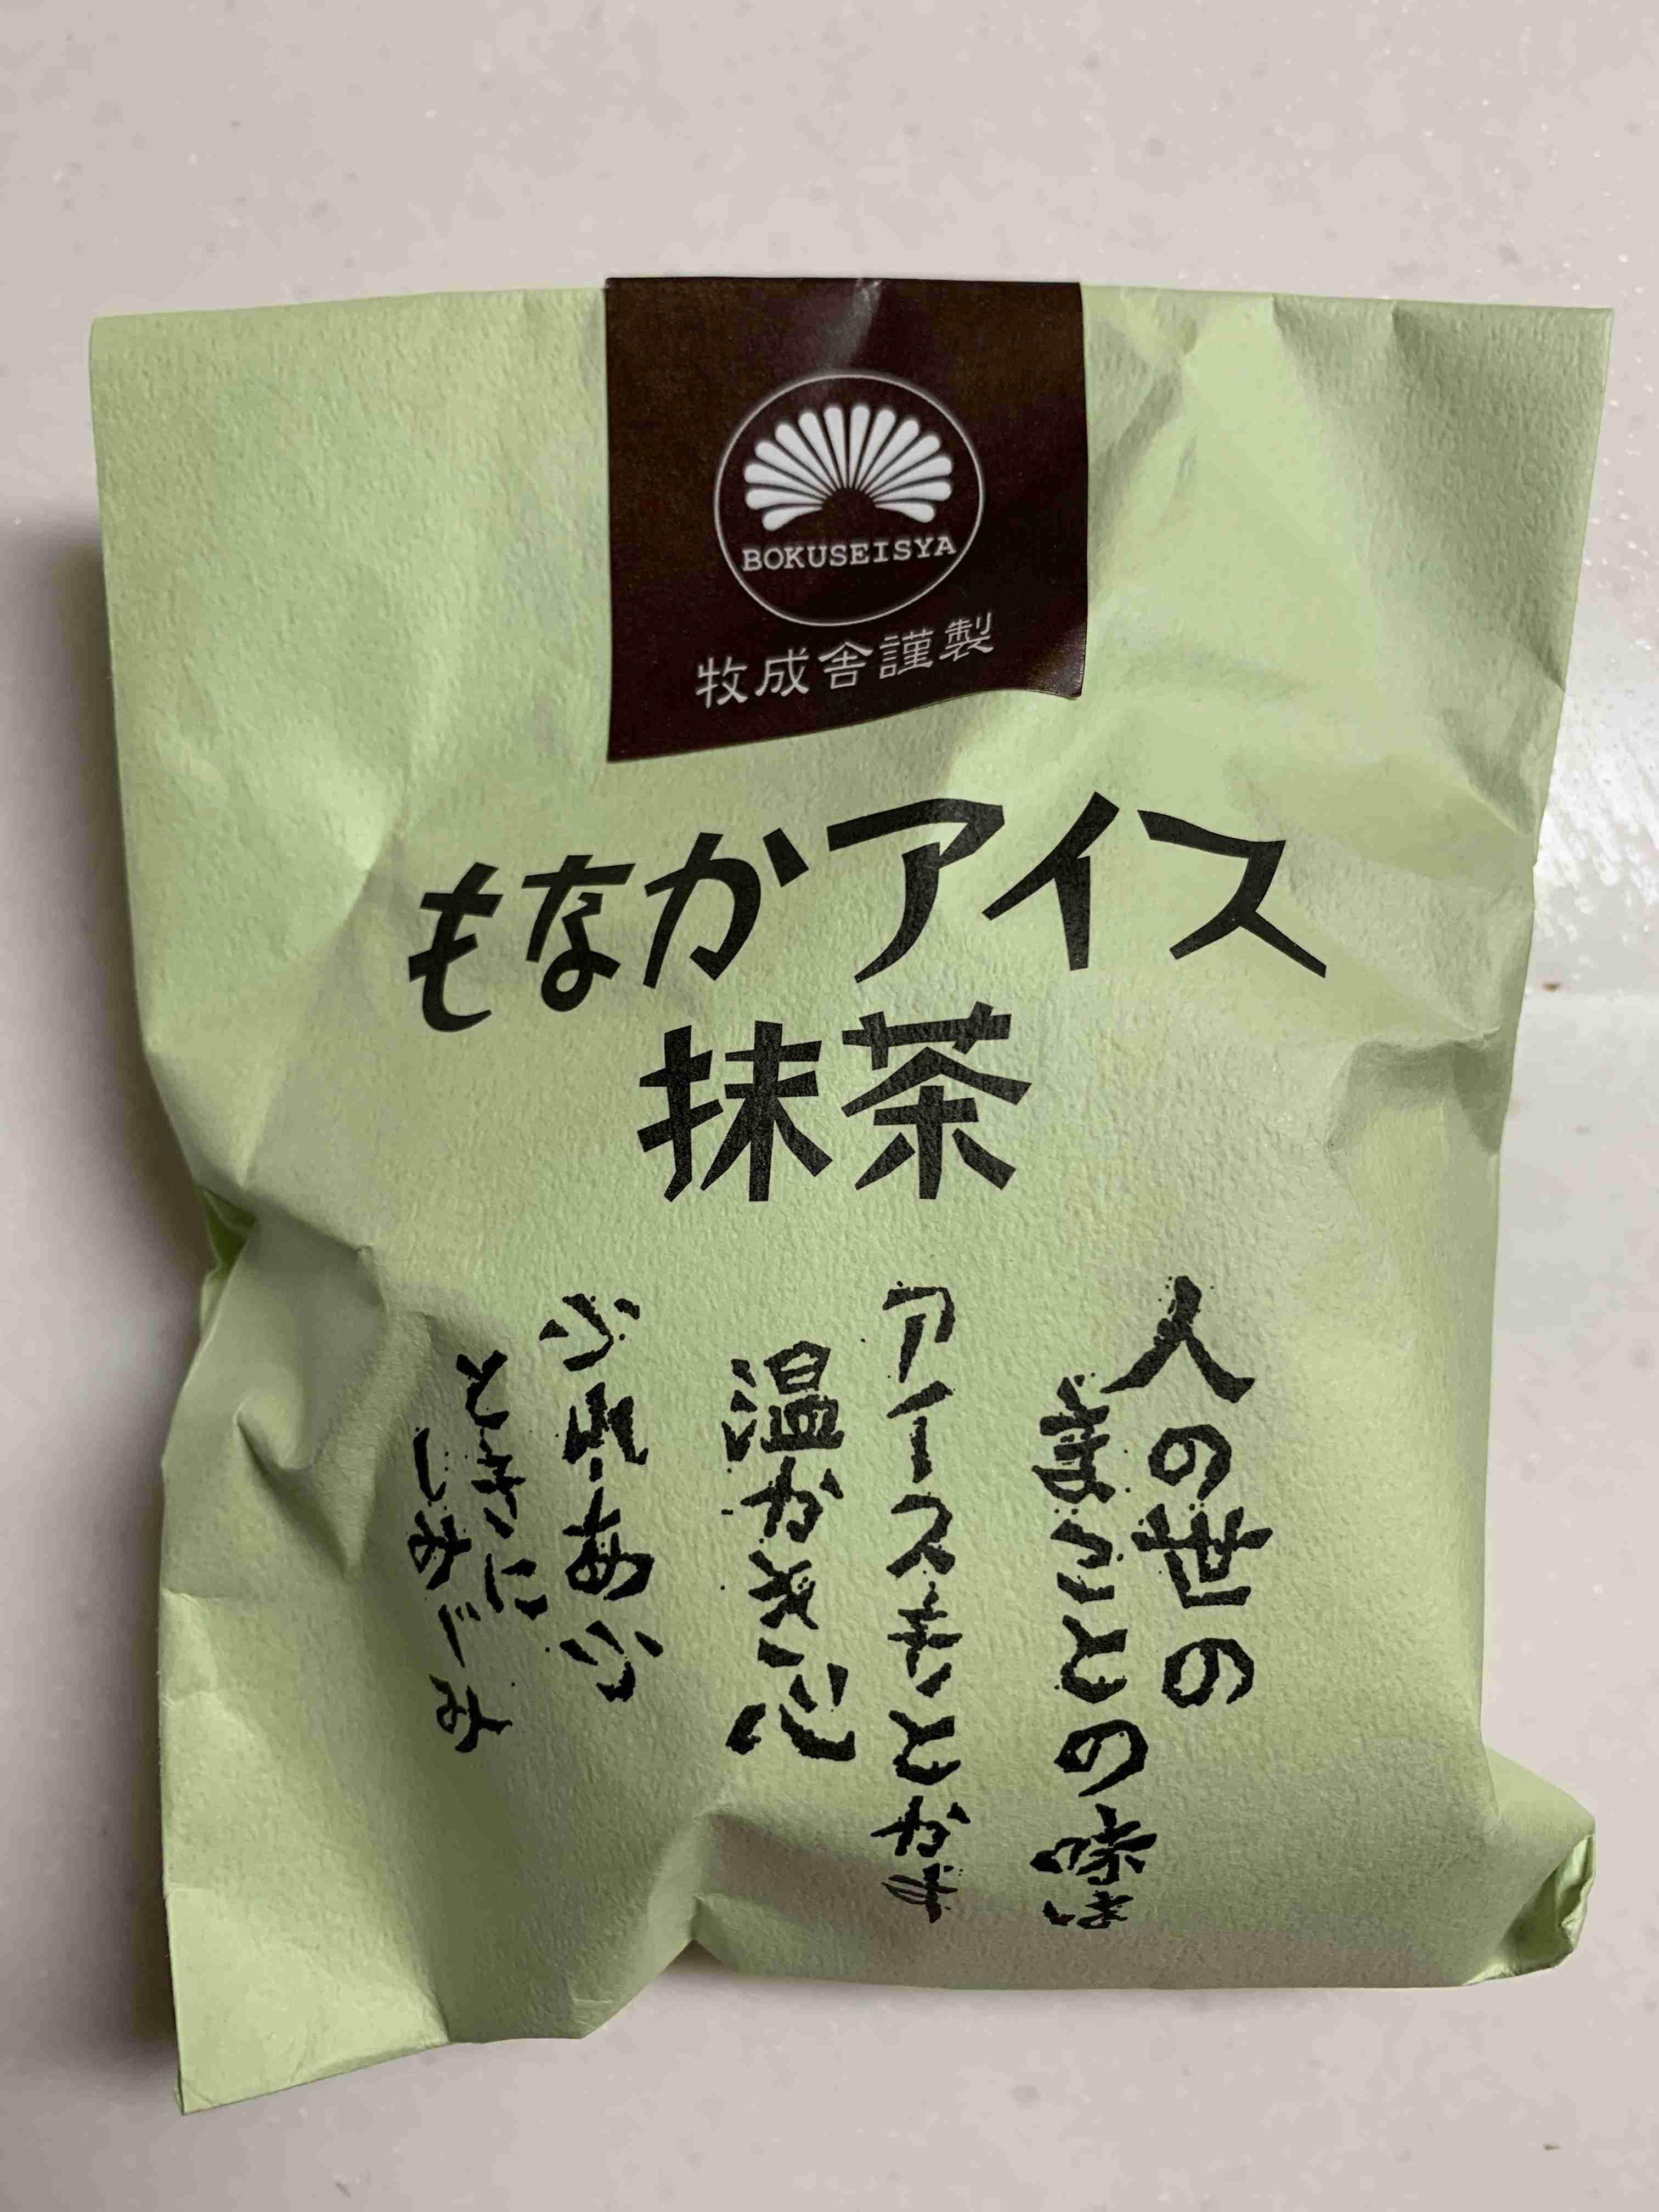 BOKUSEISYA
牧成舎謹製
もなかアイス
抹茶
人の世の
まことの味は
アイースもとかす
温かき心
ふれあふ
ときに
しみじみ